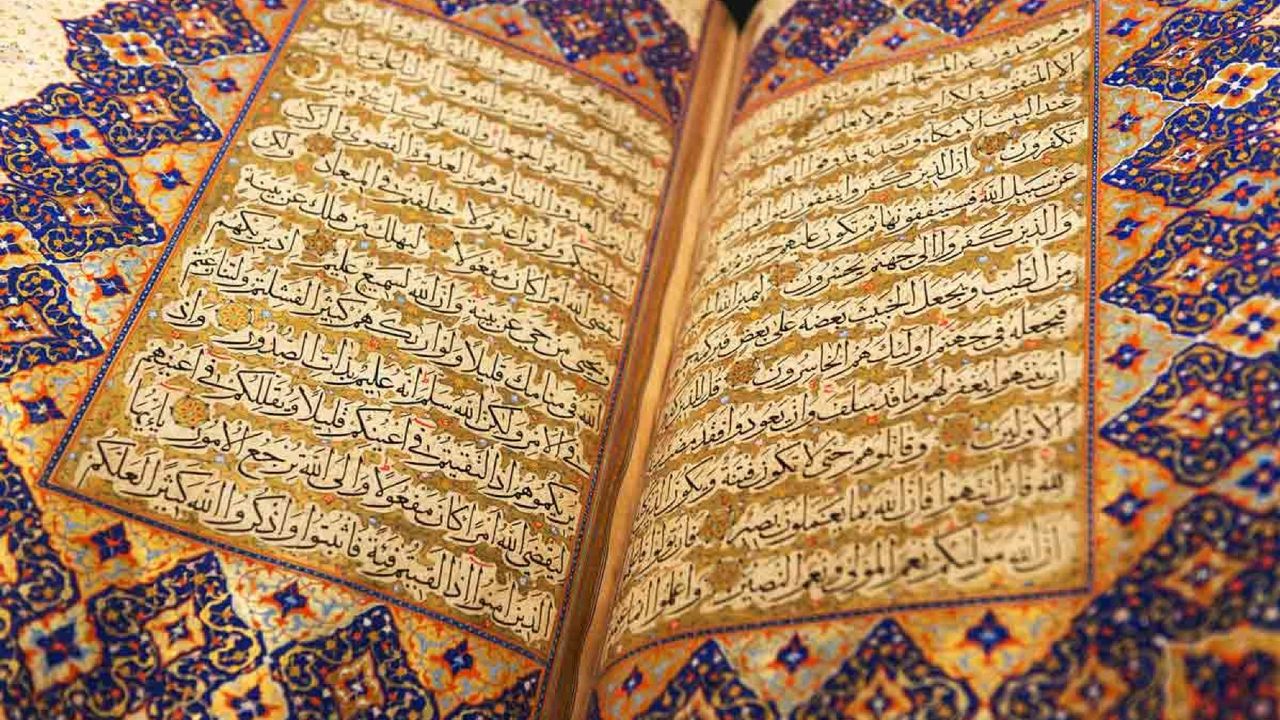 وهم يصدون عن المسجد الحرام
الا المتقون ولكن اكثرهم لا يعلمون
عند البيت الا مكاء وتصدية فذوقوا
تكفرون ان الذين كفروا ينفقون اموالهم
عن سبيل الله فسينفقونها ثم تكون عليهم حسرة
والذين كفروا الى جهنم يحشرون ليميز الله
من الطيب ويجعل الخبيث بعضه على بعض فيركمه
فيجعله في جهنم اولئك هم الخاسرون قل للذين
ان ينتهوا يغفر لهم ما قد سلف وان يعودوا فقد مضت
الاولين وقاتلوهم حتى لا تكون فتنة ويكون الدين
لله فان انتهوا فان الله بما يعملون بصير وان تولوا
ان الله موليكم نعم المولى ونعم النصير واعلموا انما
يوم التقى الجمعان والله على كل شيء قدير
بالعدوة الدنيا وهم بالعدوة القصوى والركب
اسفل منكم ولو تواعدتم لاختلفتم في الميعاد ولكن
ليقضي الله امرا كان مفعولا ليهلك من هلك عن بينة
ويحيى من حي عن بينة وان الله لسميع عليم اذ يريكهم
الله في منامك قليلا ولو اراكهم كثيرا لفشلتم ولتنازعتم
في الامر ولكن الله سلم انه عليم بذات الصدور واذ
يريكموهم اذ التقيتم في اعينكم قليلا ويقللكم في اعينهم
ليقضي الله امرا كان مفعولا والى الله ترجع الامور يايها
الذين امنوا اذا لقيتم فئة فاثبتوا واذكروا الله كثيرا لعلكم